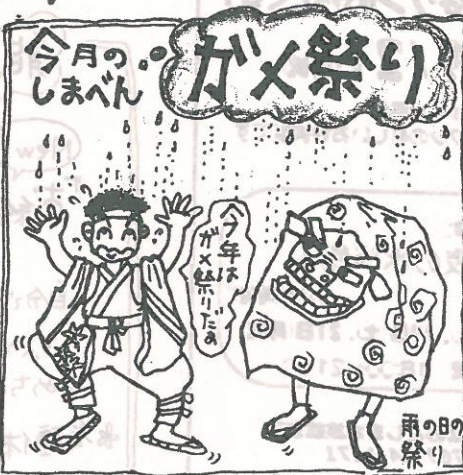 今月の
しまべん
ガメ祭り
今年は
ガメ祭りだぁ
祭
雨の日の
祭り